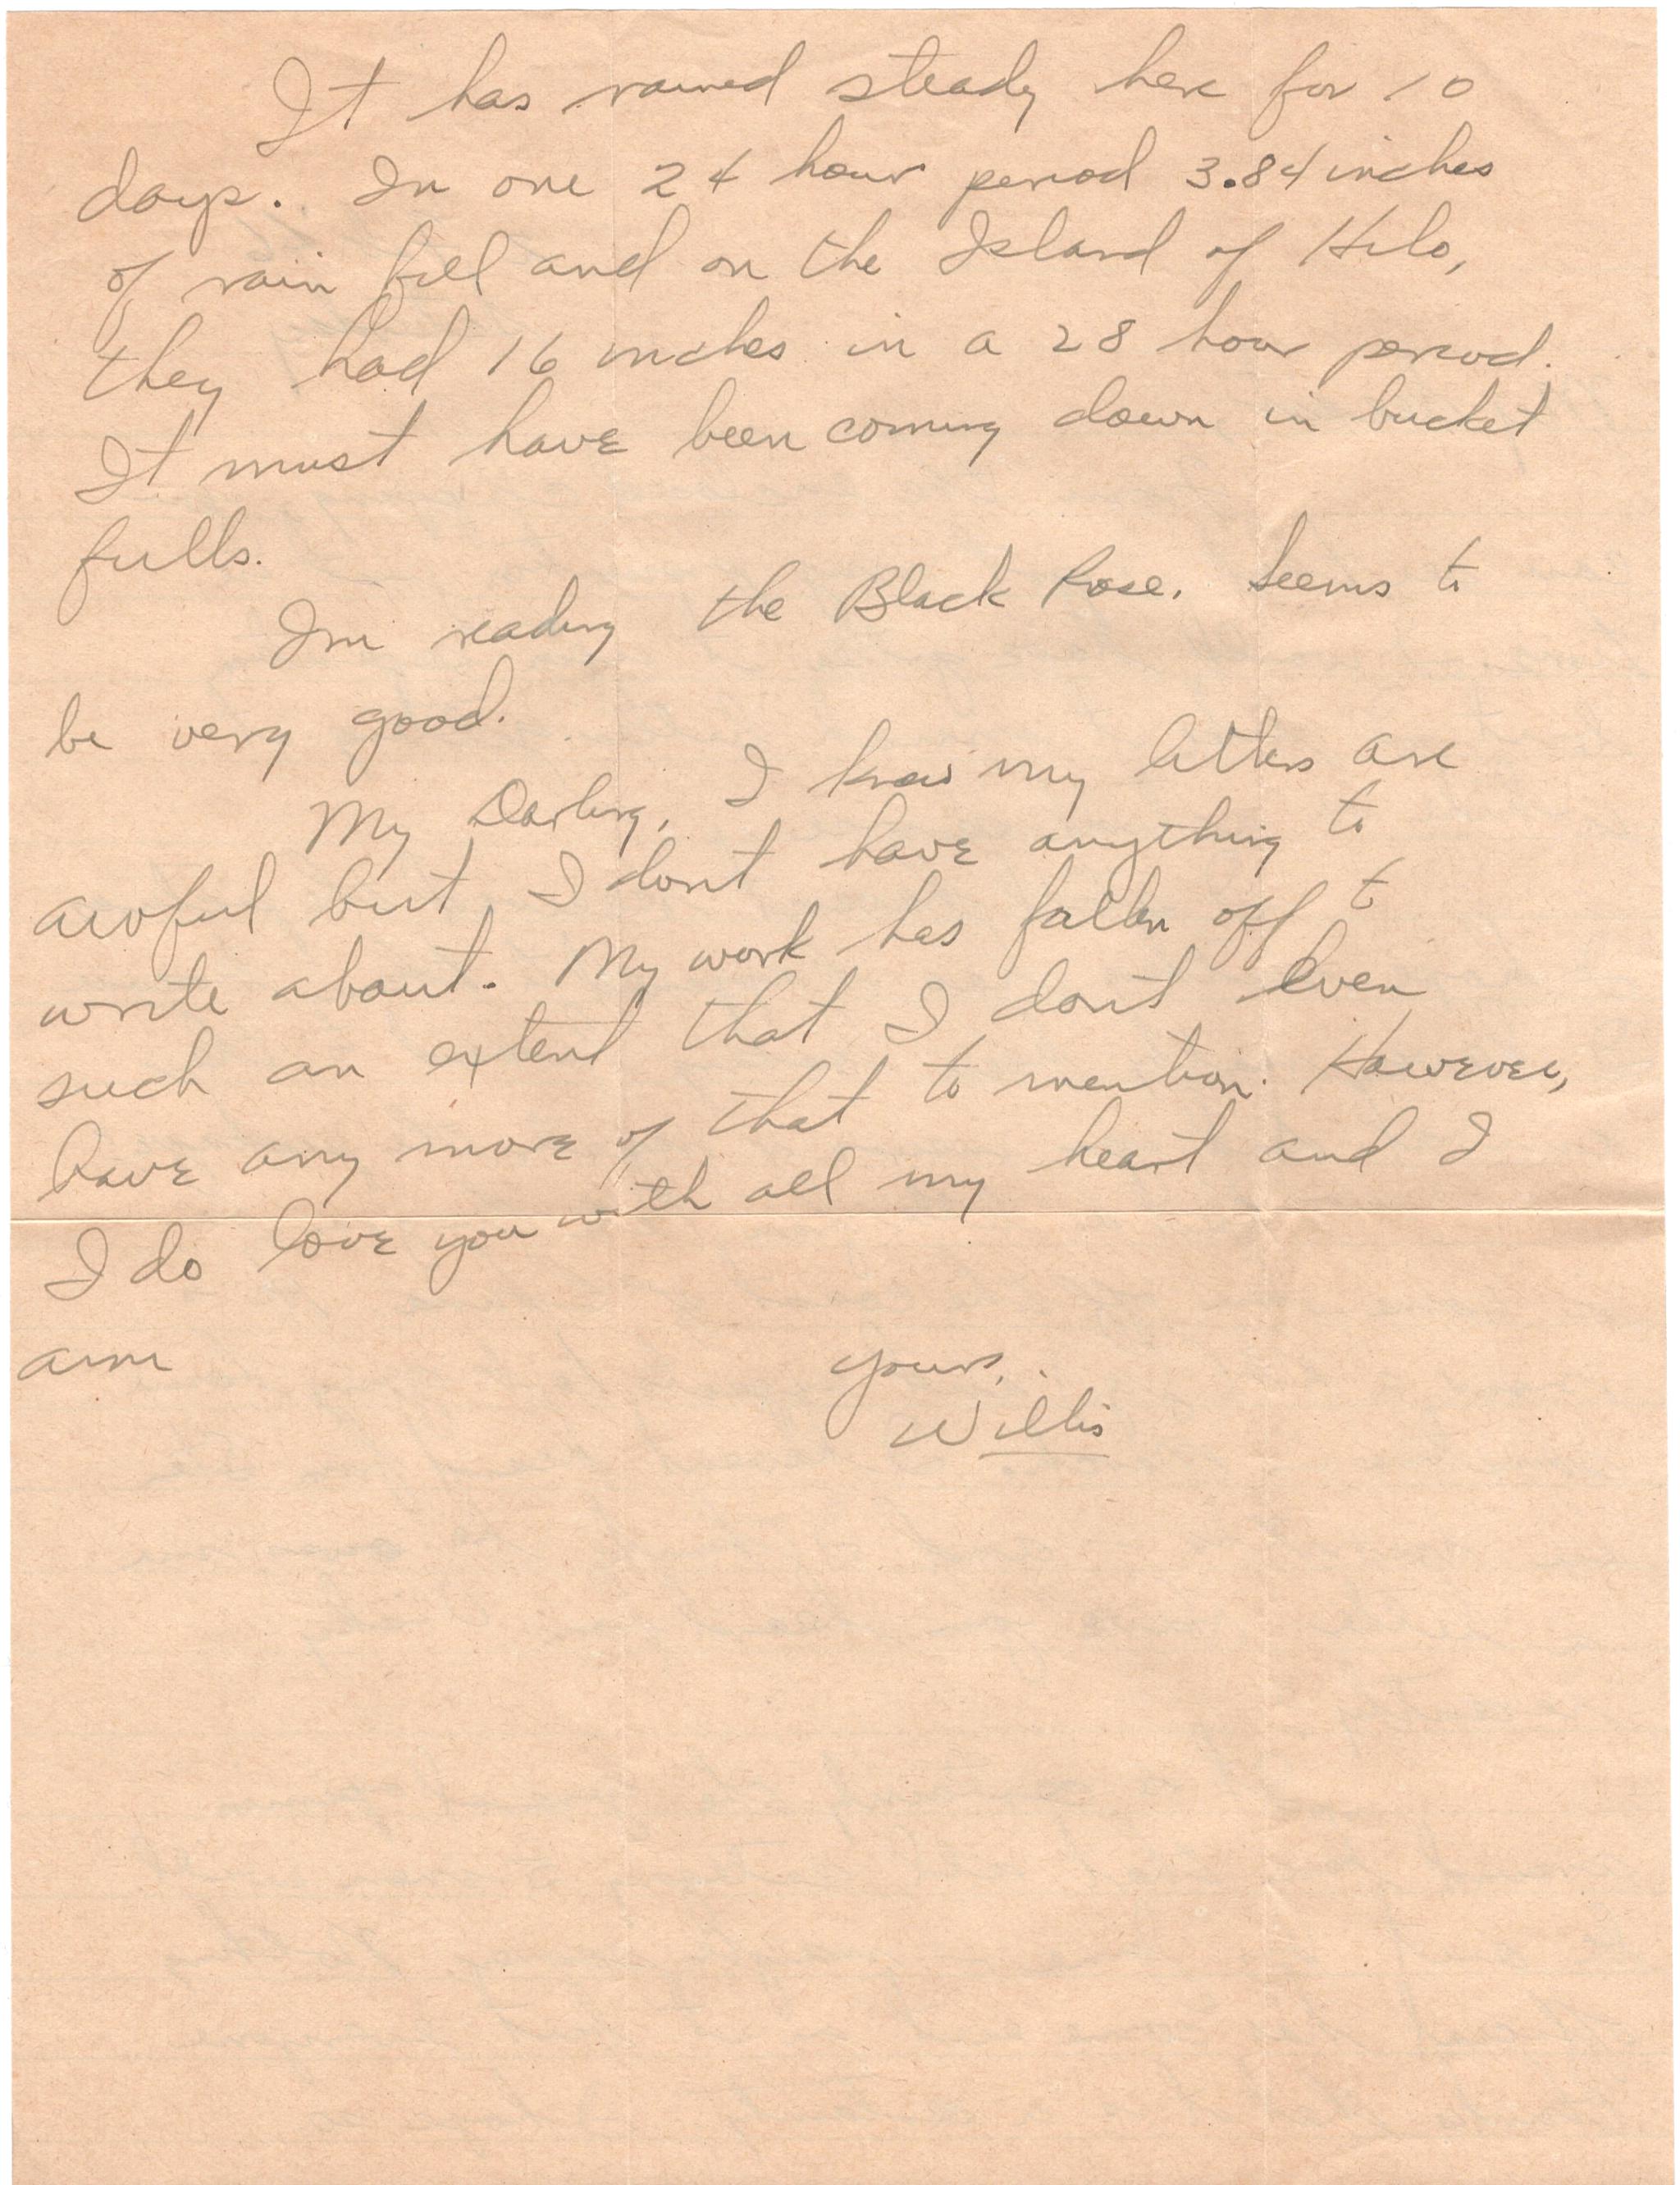 It has rained steady here for 10
days. In one 24 hour period 3.84 inches
of rain fell and on the Island of Hilo,
they had 16 inches in a 28 hour period.
It must have been coming down in bucket
fulls.
Im reading the Black Rose. Seems to
be very good.
My Darling, I know my letters are
awful but I dont have anything to
write about. My work has fallen off to
such an extent that I dont even
have any more of that to mention. However,
I do love you with all my heart and I
am
yours,
Willis